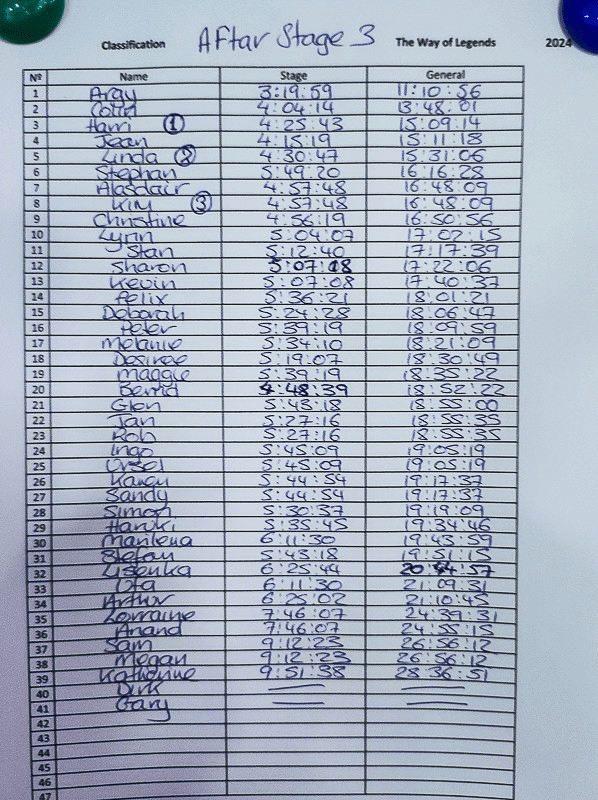 Classification AFtar Stage 3 The Way of Legends 2024
Nº Name Stage General
1 Argy 3:19:59 11:10:56
2 Colin 4:04:14 13:48:01
3 Harri ① 4:25:43 15:09:14
4 Jean 4:15:19 15:11:18
5 Linda ② 4:30:47 15:31:06
6 Stephan 5:49:20 16:16:28
7 Alasdair 4:57:48 16:48:09
8 Kim ③ 4:57:48 16:48:09
9 Christine 4:56:19 16:50:56
10 Lynn 5:04:07 17:02:15
11 Stan 5:12:40 17:17:39
12 Sharon 5:07:08 17:22:06
13 Kevin 5:07:08 17:40:37
14 Felix 5:36:21 18:01:21
15 Deborah 5:24:28 18:06:47
16 Peter 5:39:19 18:09:59
17 Melanie 5:34:10 18:21:09
18 Desiree 5:19:07 18:30:49
19 Maggie 5:39:19 18:35:22
20 Bernd 4:48:39 18:52:22
21 Glen 5:43:18 18:55:00
22 Jan 5:27:16 18:55:35
23 Rob 5:27:16 18:55:35
24 Ingo 5:45:09 19:05:19
25 Ursel 5:45:09 19:05:19
26 5:44:54 19:17:37
27 Sandy 5:44:54 19:17:37
28 Simon 5:30:37 19:19:09
29 Haruki 5:35:45 19:34:46
30 Marilena 6:11:30 19:43:59
31 Stefan 5:43:18 19:51:15
32 Lisenka 6:25:44 20:44:57
33 Uta 6:11:30 21:09:31
34 Arthur 6:25:02 21:10:45
35 Lorraine 7:46:07 24:39:31
36 Anand 7:46:07 24:55:15
37 Sam 9:12:23 26:56:12
38 Megan 9:12:23 26:56:12
39 Katherine 9:51:38 28:36:51
40 Dirk
41 Gary
42
43
44
45
46
47